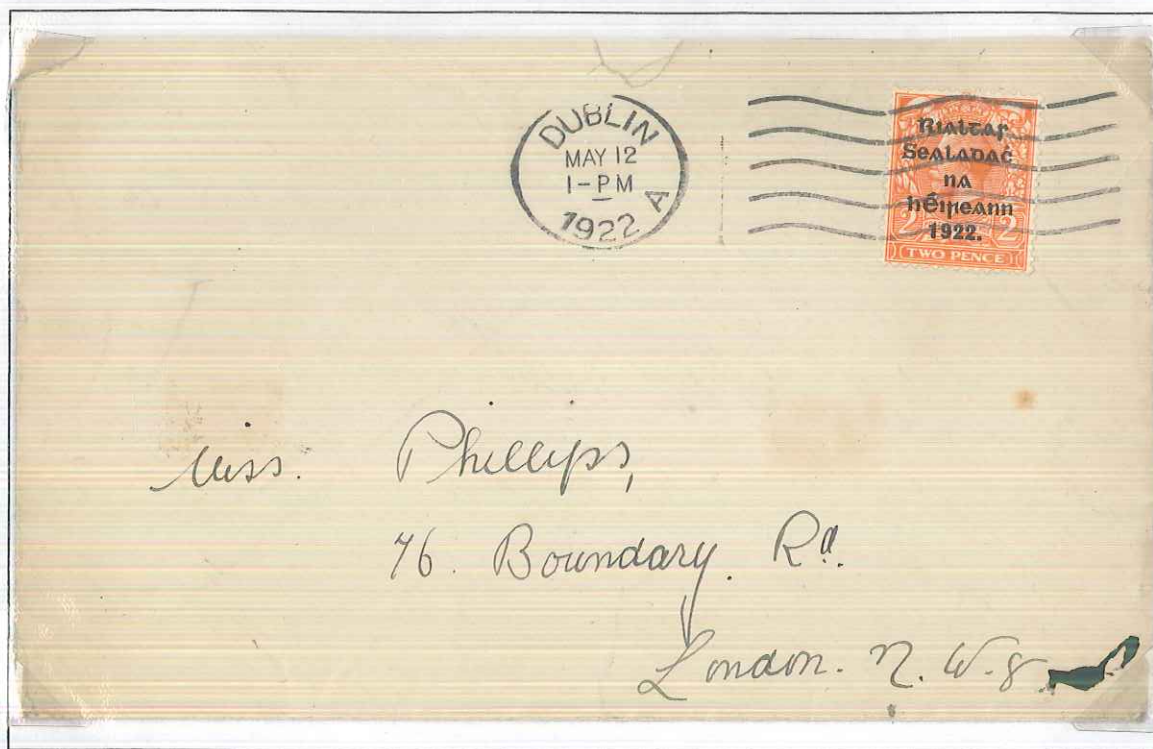 DUBLIN
MAY 12
1-PM
1922 A
Rialtas
Sealadaċ
na
hÉireann
1922.
2 2
TWO PENCE
Miss. Phillips,
76. Boundary. Rd.
London. N. W. 8